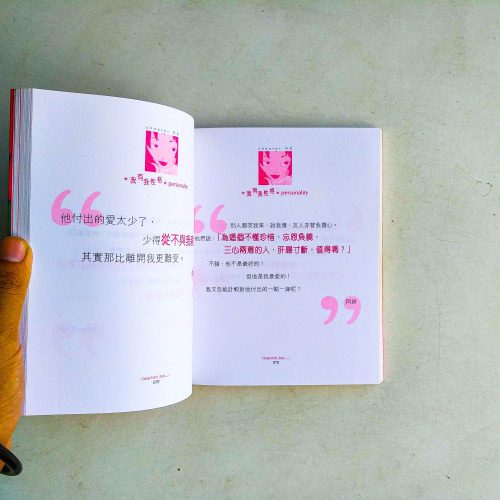 chapter 03
★我有我性格★personality
他付出的愛太少了，
少得從不與我
其實那比離開我更難受。
I love him, but......
072
chapter 03
★我有我性格★personality
別人都笑我笨，說我傻，友人亦替我擔心。
他們說：「為這個不懂珍惜、忘恩負義、
三心兩意的人，肝腸寸斷，值得嗎？」
不錯，他不是最好的！
但他是我最愛的！
我又怎能計較對他付出的一點一滴呢？
阿妍
I love him, but......
073